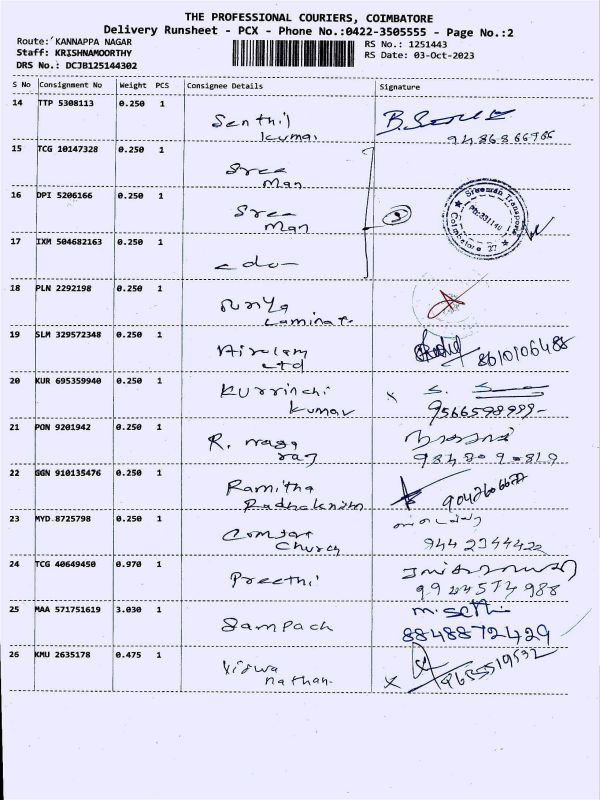 THE PROFESSIONAL COURIERS, COIMBATORE
Delivery Runsheet - PCX - Phone No.:0422-3505555 - Page No.:2
Route: KANNAPPA NAGAR
RS No.: 1251443
Staff: KRISHNAMOORTHY
RS Date: 03-Oct-2023
DRS No.: DCJB125144302
S No Consignment No Weight PCS Consignee Details Signature
14 TTP 5308113 0.250 1 Senthil
Kumar
9486866966
15 TCG 10147328 0.250 1 Sree
Man
16 DPI 5206166 0.250 1 Sree
Man
3
Sreeman Transports
Coimbatore
17 IXM 504682163 0.250 1 - do -
18 PLN 2292198 0.250 1
Laminat
19 SLM 329572348 0.250 1
Ltd
8610106488
20 KUR 695359940 0.250 1 Kurrinchi
Kumar
x S.
9566598999-
21 PON 9201942 0.250 1 R. Naga
raj
22 GGN 910135476 0.250 1 Ramitha
Radhakrishn
9042606677
23 MYD 8725798 0.250 1
Church
9442344422
24 TCG 40649450 0.970 1 Preethi
25 MAA 571751619 3.030 1 Sampath
M. Sethi
8848872429
26 KMU 2635178 0.475 1 Viswa
nathan
x 9655519532